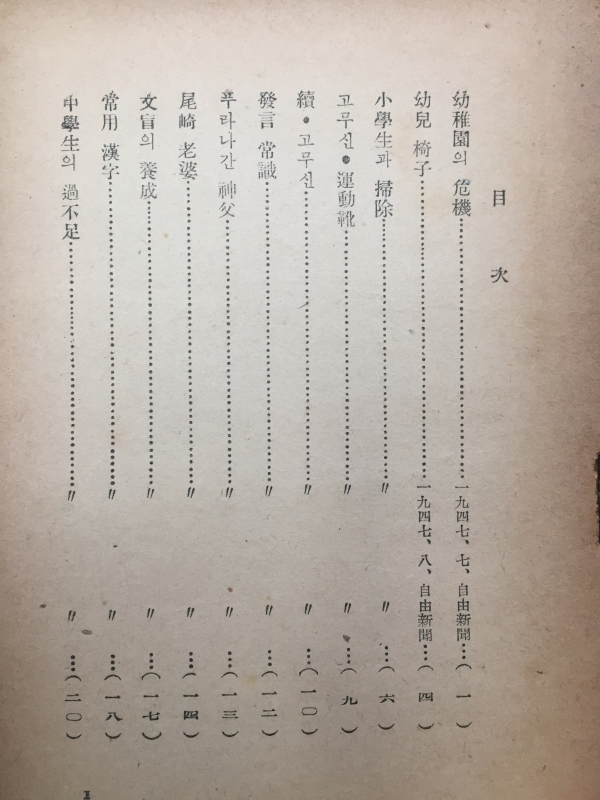 目次
幼稚園의 危機……一九四七、七、自由新聞…(一)
幼兒 椅子……一九四七、八、自由新聞…(四)
小學生과 掃除……〃 〃…(六)
고무신•運動靴……〃 〃…(九)
續•고무신……〃 〃…(一〇)
發言 常識……〃 〃…(一二)
푸라나간 神父……〃 〃…(一三)
尾崎 老婆……〃 〃…(一四)
文盲의 養成……〃 〃…(一七)
常用 漢字……〃 〃…(一八)
中學生의 過不足……〃 〃…(二〇)
1